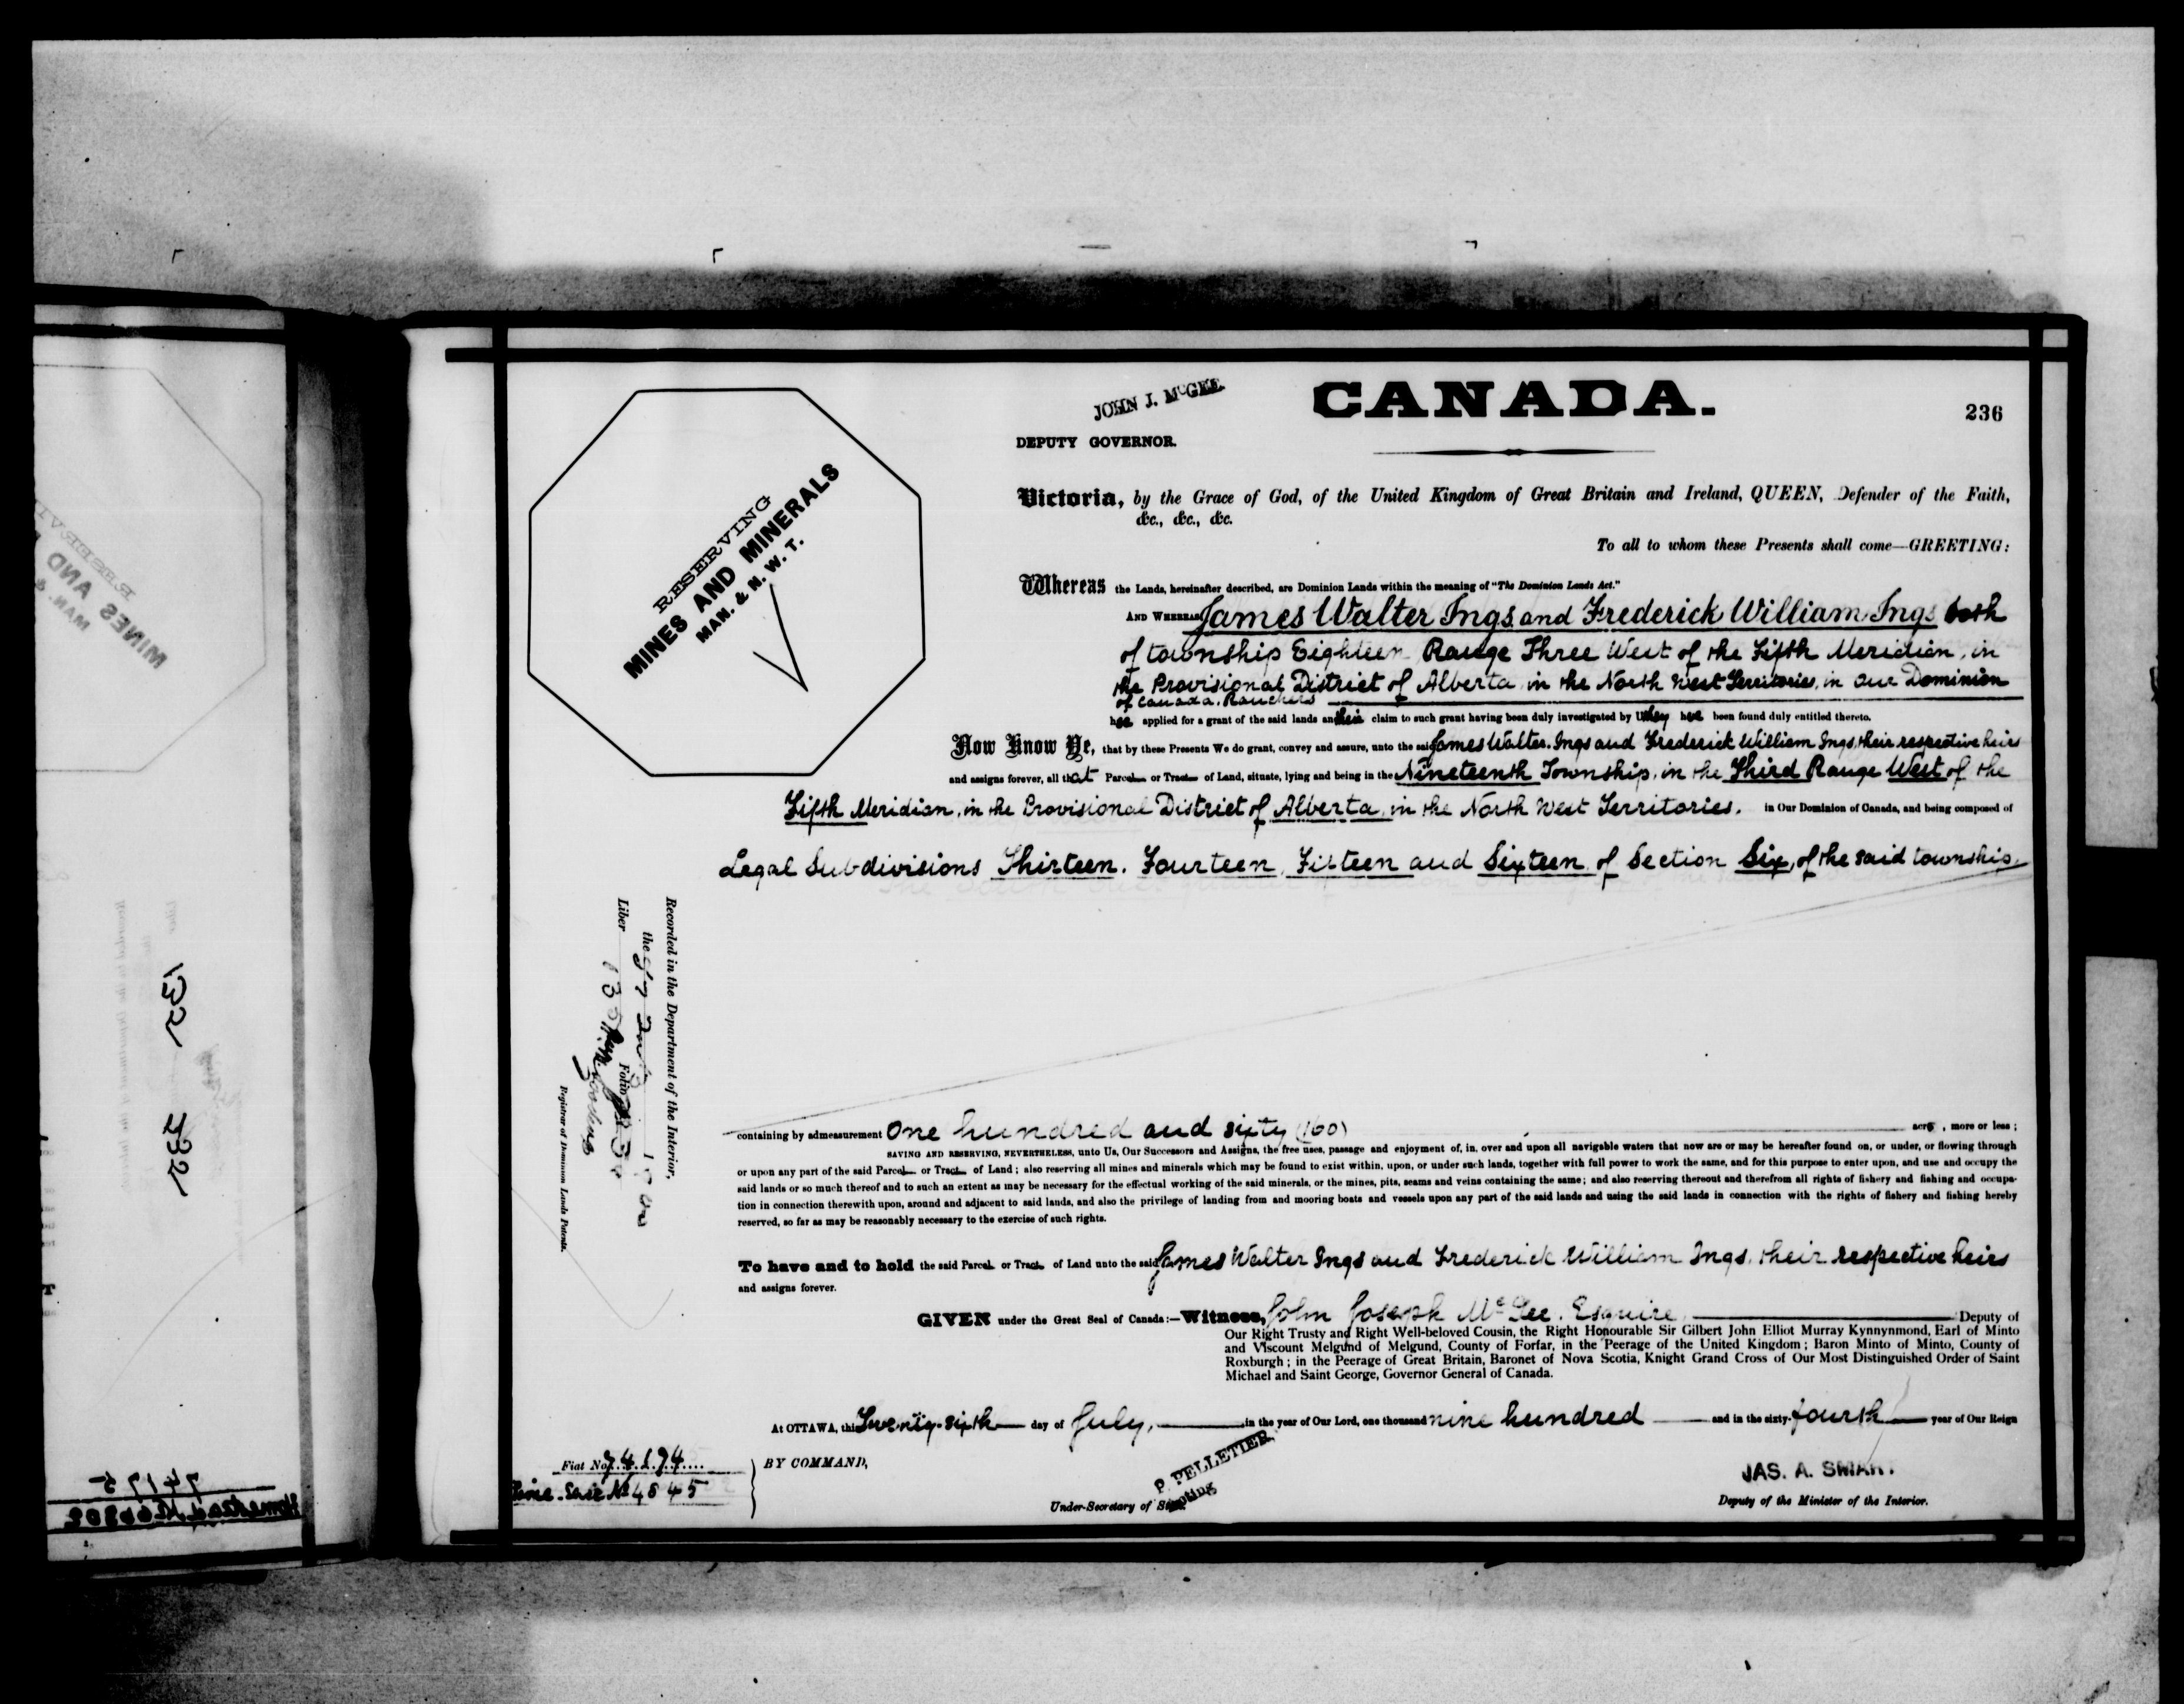 JOHN J. McGEE
CANADA.
236
DEPUTY GOVERNOR.
RESERVING
MINES AND MINERALS
MAN. & N. W. T.
Victoria, by the Grace of God, of the United Kingdom of Great Britain and Ireland, QUEEN, Defender of the Faith,
&c., &c., &c.
To all to whom these Presents shall come—GREETING:
Whereas the Lands, hereinafter described, are Dominion Lands within the meaning of "The Dominion Lands Act."
AND WHEREAS James Walter Ings and Frederick William Ings both
of township Eighteen Range Three West of the Fifth Meridian, in
the Provisional District of Alberta, in the North West Territories, in our Dominion
of Canada, Ranchers
have applied for a grant of the said lands and their claim to such grant having been duly investigated by Us they have been found duly entitled thereto.
Now Know Ye, that by these Presents We do grant, convey and assure, unto the said James Walter Ings and Frederick William Ings, their respective heirs
and assigns forever, all that Parcel or Tract of Land, situate, lying and being in the Nineteenth Township, in the Third Range West of the
Fifth Meridian, in the Provisional District of Alberta, in the North West Territories, in Our Dominion of Canada, and being composed of
Legal Subdivisions Thirteen, Fourteen, Fifteen and Sixteen, of Section Six, of the said township.
Recorded in the Department of the Interior,
the
Liber Folio
Registrar of Dominion Lands Patents.
containing by admeasurement One hundred and sixty (160) acres, more or less;
SAVING AND RESERVING, NEVERTHELESS, unto Us, Our Successors and Assigns, the free uses, passage and enjoyment of, in, over and upon all navigable waters that now are or may be hereafter found on, or under, or flowing through
or upon any part of the said Parcel or Tract of Land; also reserving all mines and minerals which may be found to exist within, upon, or under such lands, together with full power to work the same, and for this purpose to enter upon, and use and occupy the
said lands or so much thereof and to such an extent as may be necessary for the effectual working of the said minerals, or the mines, pits, seams and veins containing the same; and also reserving thereout and therefrom all rights of fishery and fishing and occupa-
tion in connection therewith upon, around and adjacent to said lands, and also the privilege of landing from and mooring boats and vessels upon any part of the said lands and using the said lands in connection with the rights of fishery and fishing hereby
reserved, so far as may be reasonably necessary to the exercise of such rights.
To have and to hold the said Parcel or Tract of Land unto the said James Walter Ings and Frederick William Ings, their respective heirs
and assigns forever.
GIVEN under the Great Seal of Canada:—Witness, John Joseph McGee, Esquire, Deputy of
Our Right Trusty and Right Well-beloved Cousin, the Right Honourable Sir Gilbert John Elliot Murray Kynnynmond, Earl of Minto
and Viscount Melgund of Melgund, County of Forfar, in the Peerage of the United Kingdom; Baron Minto of Minto, County of
Roxburgh; in the Peerage of Great Britain, Baronet of Nova Scotia, Knight Grand Cross of Our Most Distinguished Order of Saint
Michael and Saint George, Governor General of Canada.
At OTTAWA, this Twenty-sixth day of July, in the year of Our Lord, one thousand nine hundred and in the sixty-fourth year of Our Reign
Fiat No. 74174
BY COMMAND,
P. PELLETIER
Acting
Under-Secretary of State.
JAS. A. SMART
Deputy of the Minister of the Interior.
132 232
74175